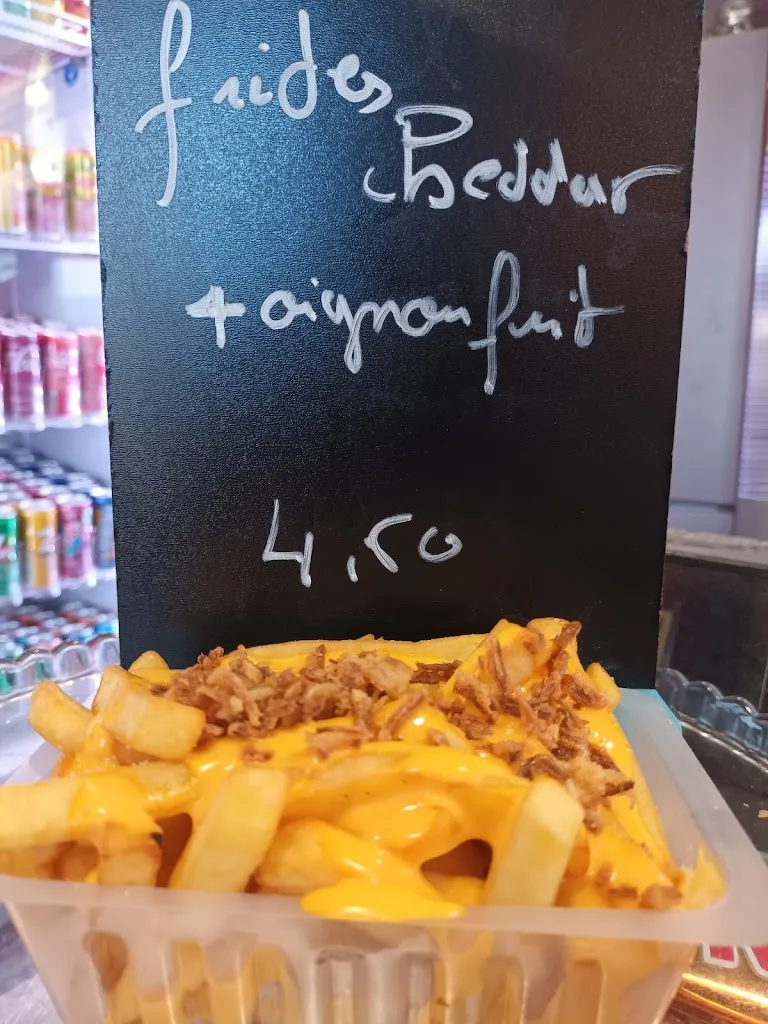 frides
Cheddar
+ oignon frit
4,50